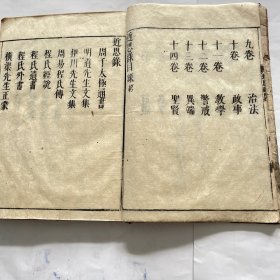 九卷　治法
十卷　政事
十一卷　教學
十二卷　警戒
十三卷　異端
十四卷　聖賢
近思錄
周子太極通書
明道先生文集
伊川先生文集
周易程氏傳
程氏經說
程氏遺書
程氏外書
橫渠先生正蒙